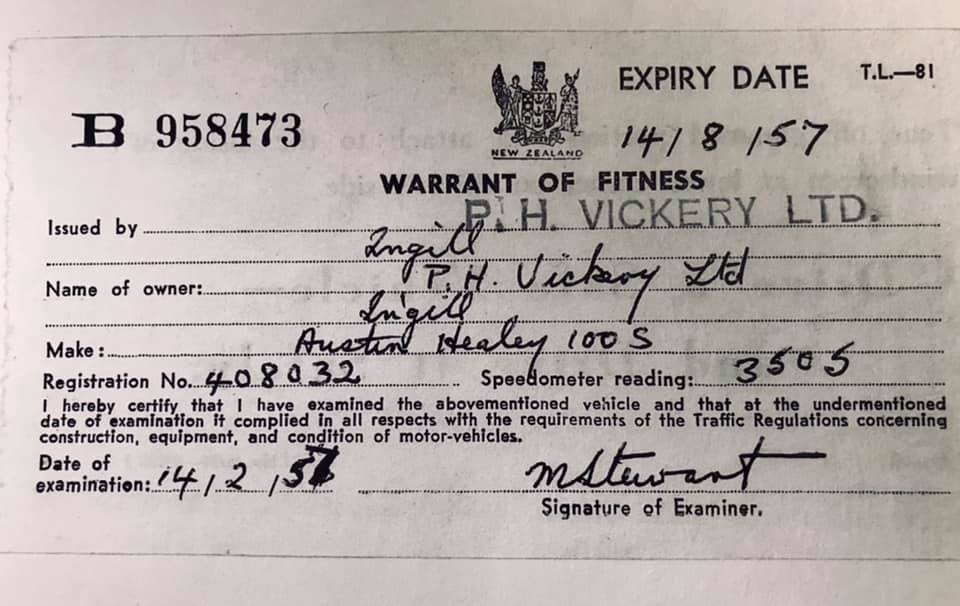 EXPIRY DATE T.L.—81
B 958473
NEW ZEALAND
14/8/57
WARRANT OF FITNESS
Issued by P. H. VICKERY LTD.
Ingill
Name of owner: P. H. Vickery Ltd
Ingill
Make: Austin Healey 100 S
Registration No. 408032 Speedometer reading: 3505
I hereby certify that I have examined the abovementioned vehicle and that at the undermentioned
date of examination it complied in all respects with the requirements of the Traffic Regulations concerning
construction, equipment, and condition of motor-vehicles.
Date of
examination: 14/2/57 MStewart
Signature of Examiner.